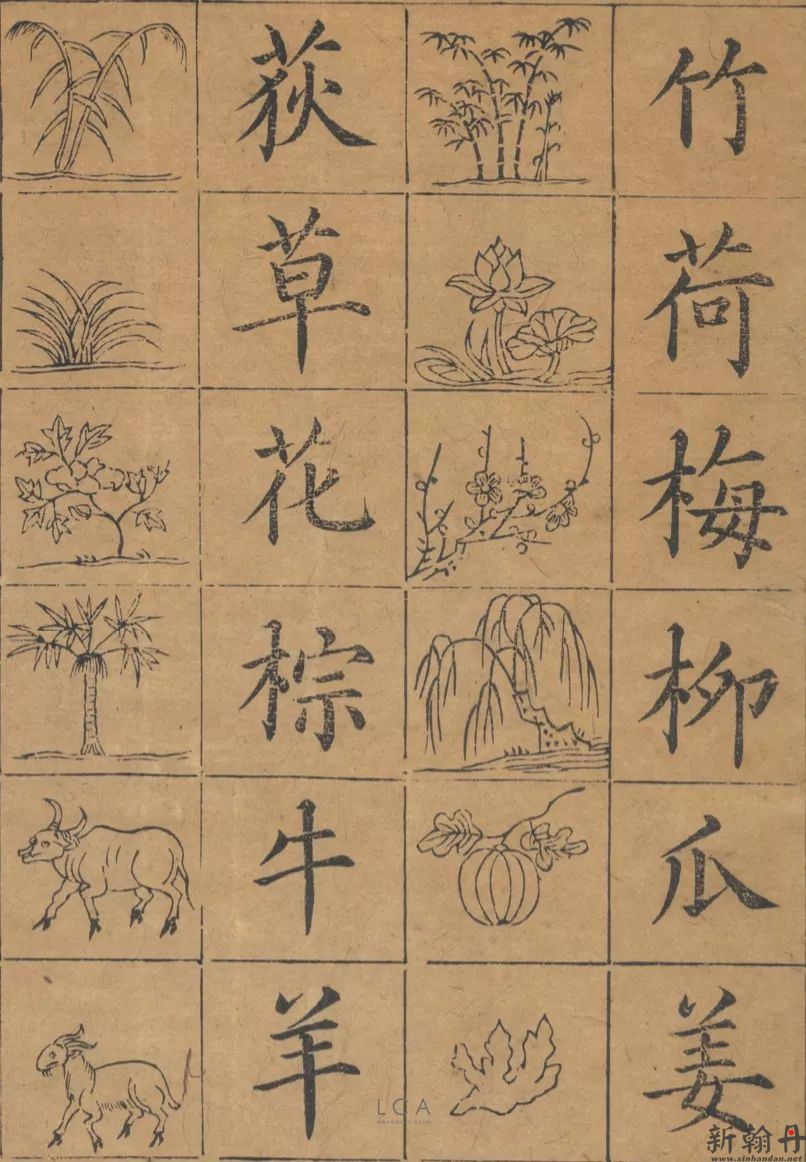 竹
荷
梅
柳
瓜
姜
荻
草
花
棕
牛
羊
LCA
新翰丹
www.xinhandan.net